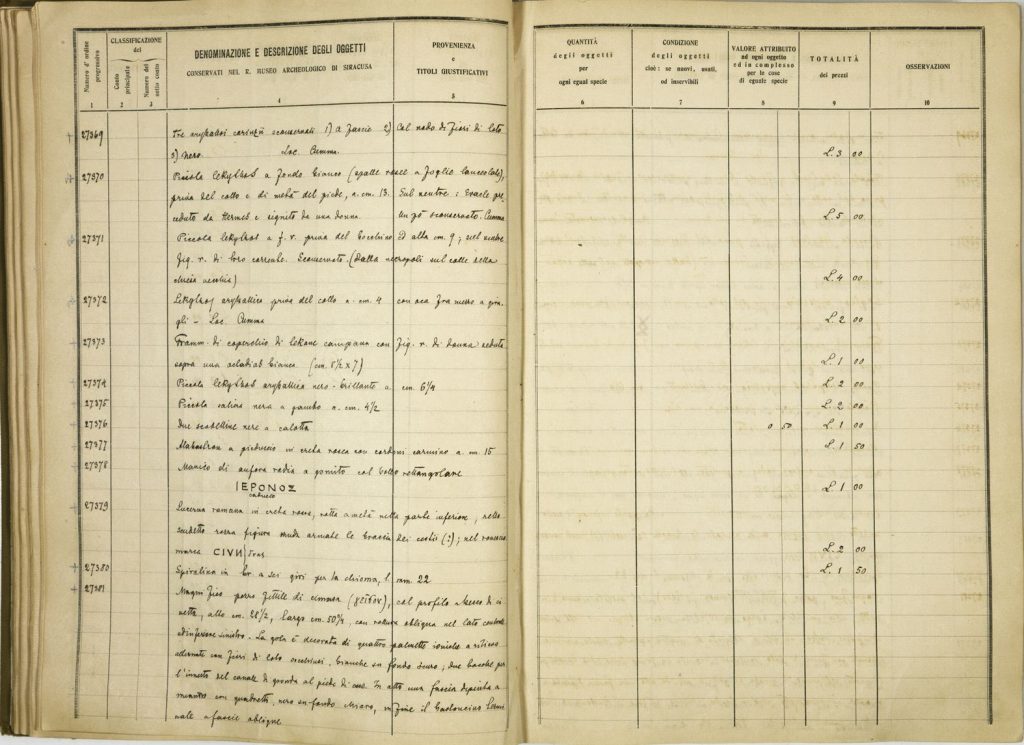 Numero d'ordine progressivo
CLASSIFICAZIONE del
Conto principale
Numero del sotto conto
DENOMINAZIONE E DESCRIZIONE DEGLI OGGETTI
CONSERVATI NEL R. MUSEO ARCHEOLOGICO DI SIRACUSA
PROVENIENZA
e
TITOLI GIUSTIFICATIVI
QUANTITÀ
degli oggetti
per
ogni egual specie
CONDIZIONE
degli oggetti
cioè: se nuovi, usati,
od inservibili
VALORE ATTRIBUITO
ad ogni oggetto
ed in complesso
per le cose
di eguale specie
TOTALITÀ
dei prezzi
OSSERVAZIONI
1 2 3 4 5 6 7 8 9 10
27369 Tre aryballoi corinzii sconservati 1) a fascie 2) Col nodo di fiori di loto
3) nero. Loc. Cumma. L. 3 00
27370 Piccola lekythos a fondo bianco (spalle rosse a foglie lanceolate),
priva del collo e di metà del piede, a. cm. 13. Sul ventre: Eracle pre
ceduto da Hermes e seguito da una donna. Un pò sconservato. Cumma L. 5 00
27371 Piccola lekythos a f. r. priva del bocchino ed alta cm. 9; sul ventre
fig. r. di toro corrente. Sconservato. (Dalla necropoli sul colle della
chiesa vecchia) L. 4 00
27372 Lekythos aryballica priva del collo a. cm. 4 con oca fra
gli - Loc. Cumma L. 2 00
27373 Framm. di coperchio di lekane campana con fig. r. di donna seduta
sopra una bianca (cm. 8½ x 7) L. 1 00
27374 Piccola lekythos aryballica nero-brillante a. cm. 6¼ L. 2 00
27375 Piccola saliera nera a gambo a. cm. 4½ L. 2 00
27376 Due scodelline nere a calotta 0 50 L. 1 00
27377 Alabastron a pieduccio in creta rosea con cordoni carmino a. cm. 15 L. 1 50
27378 Manico di anfora rodia a gomito col bollo rettangolare
ΙΕΡΟΝΟΣ L. 1 00
caduceo
27379 Lucerna romana in creta rossa, rotta a metà nella parte inferiore, nello
scudetto rozza figura nuda armate le braccia dei cestii (?); nel rovescio
marca CIVN L. 2 00
27380 Spiralina in br. a sei giri per la chioma, l. mm. 22 L. 1 50
27381 Magnifico pezzo fittile di (γεῖσον), col profilo
netta, alto cm. 28½, largo cm. 50¾, con rottura obliqua nel lato
ed inferiore sinistro. La gola è decorata di quattro palmette ioniche a
alternate con fiori di loto bianche su fondo scuro; due per
l'innesto del canale di gronda al piede di In alto una fascia dipinta a
meandro con quadretti, nero su fondo fine il bastoncino
nate a fascie oblique